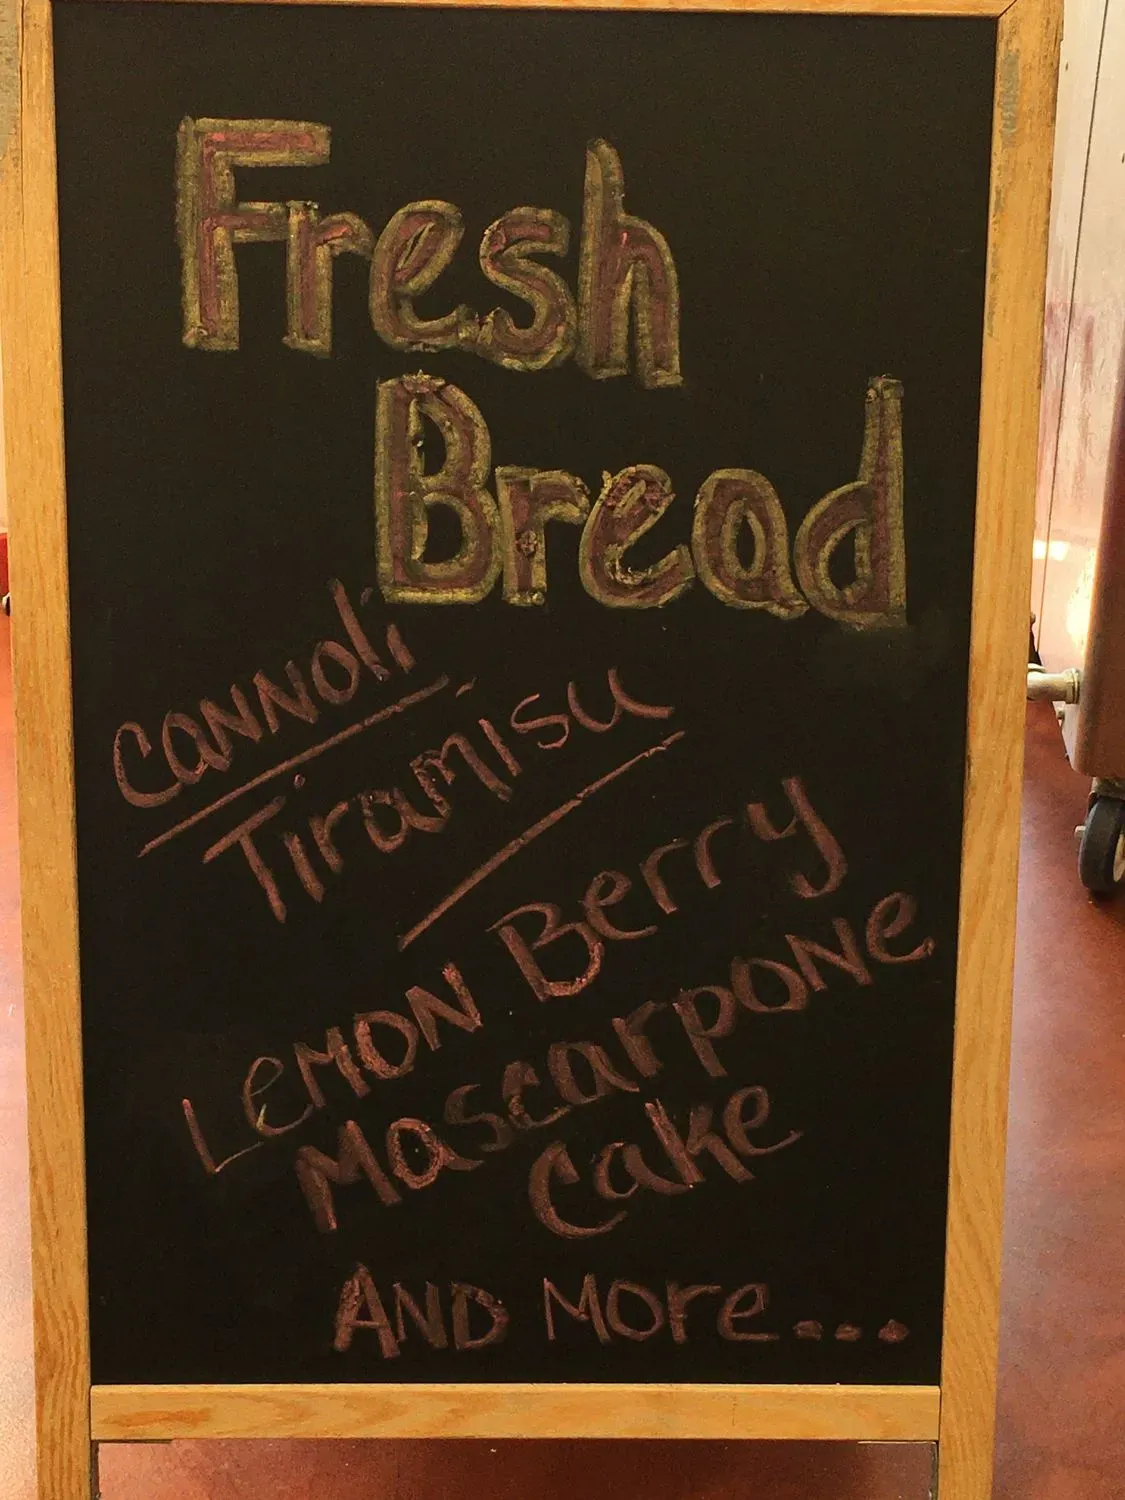 Fresh
Bread
CANNOli
Tiramisu
LeMON Berry
MascarpONe
Cake
AND MOre...